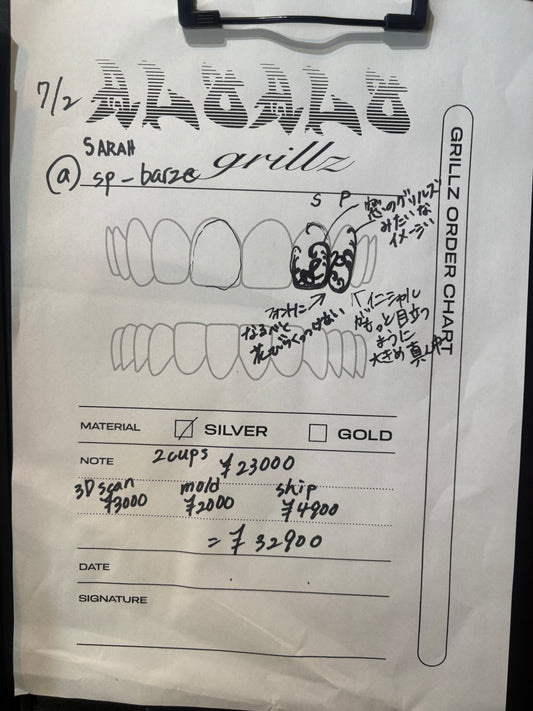 7/2
grillz
SARAH
@ sp-barze
GRILLZ ORDER CHART
S P
窓のグリルズ
みたいな
イメージ
フォントに
なるべく
花びらくっつけない
イニシャル
がもっと目立つ
ように
大きめ 真ん中
MATERIAL SILVER GOLD
NOTE 2cups ¥23000
3D scan mold ship
¥3000 ¥2000 ¥4900
= ¥32900
DATE
SIGNATURE